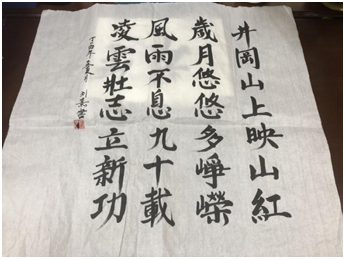 井岡山上映山紅
歲月悠悠多崢嶸
風雨不息九十載
凌雲壯志立新功
丁酉年